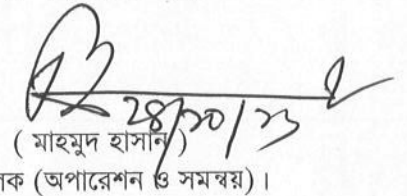 ২৪/১০/২৩
( মাহমুদ হাসান )
লক (অপারেশন ও সমন্বয়)।